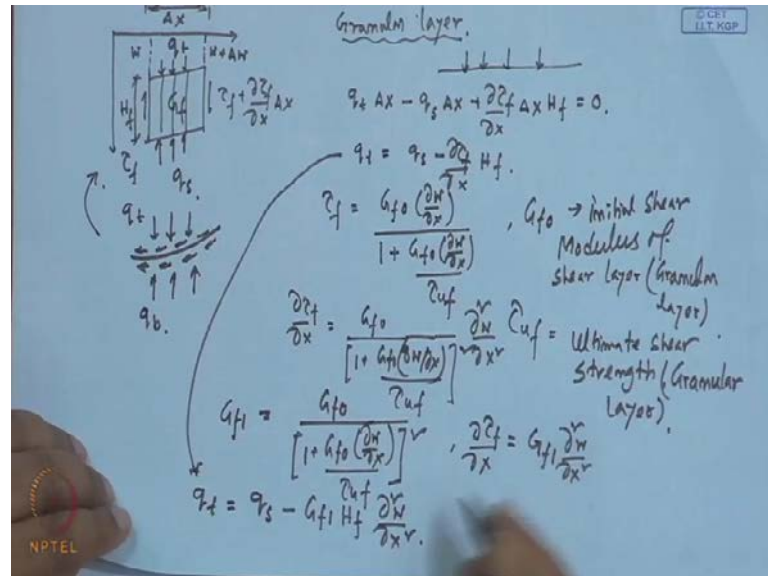 Δx
Granular layer.
© CET
I.I.T. KGP
w qt w+Δw
Hf Gf τf + ∂τf/∂x Δx
qt Δx - qs Δx + ∂τf/∂x Δx Hf = 0.
τf qs
qt = qs - ∂τf/∂x Hf.
qt
τf = Gf0 (∂w/∂x) / 1 + Gf0 (∂w/∂x)/τuf , Gf0 → initial shear
Modulus of
shear layer (Granular
layer)
qb.
∂τf/∂x = Gf0 / [1 + Gf1 (∂w/∂x)/τuf]² ∂²w/∂x²
τuf = Ultimate shear
strength (Granular
layer).
Gf1 = Gf0 / [1 + Gf0 (∂w/∂x)/τuf]² , ∂τf/∂x = Gf1 ∂²w/∂x²
qt = qs - Gf1 Hf ∂²w/∂x².
NPTEL